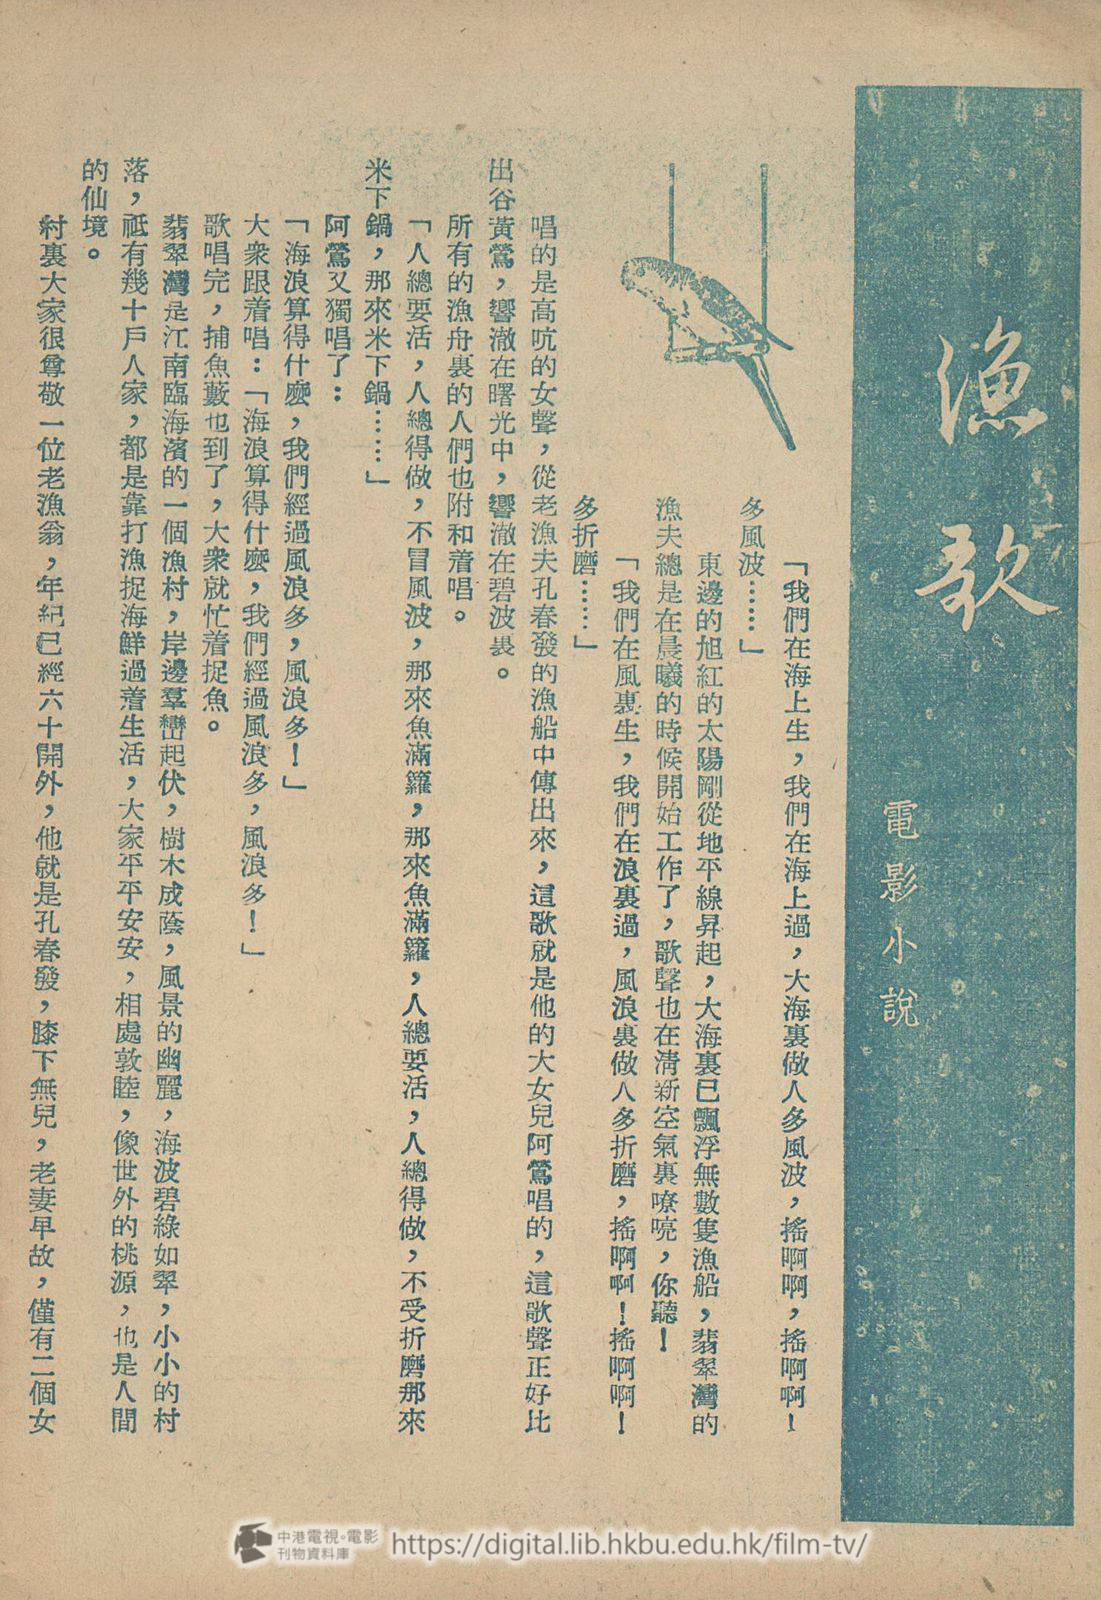 漁歌
電影小說
「我們在海上生，我們在海上過，大海裏做人多風波，搖啊啊，搖啊啊！
多風波……」
東邊的旭紅的太陽剛從地平線昇起，大海裏已飄浮無數隻漁船，翡翠灣的
漁夫總是在晨曦的時候開始工作了，歌聲也在清新空氣裏嘹亮，你聽！
「我們在風裏生，我們在浪裏過，風浪裏做人多折磨，搖啊啊！搖啊啊！
多折磨……」
唱的是高吭的女聲，從老漁夫孔春發的漁船中傳出來，這歌就是他的大女兒阿鶯唱的，這歌聲正好比
出谷黃鶯，響澈在曙光中，響澈在碧波裏。
所有的漁舟裏的人們也附和着唱。
「人總要活，人總得做，不冒風波，那來魚滿籮，那來魚滿籮，人總要活，人總得做，不受折磨那來
米下鍋，那來米下鍋……」
阿鶯又獨唱了：
「海浪算得什麼，我們經過風浪多，風浪多！」
大衆跟着唱：「海浪算得什麼，我們經過風浪多，風浪多！」
歌唱完，捕魚藪也到了，大衆就忙着捉魚。
翡翠灣是江南臨海濱的一個漁村，岸邊羣巒起伏，樹木成蔭，風景的幽麗，海波碧綠如翠，小小的村
落，祗有幾十戶人家，都是靠打漁捉海鮮過着生活，大家平平安安，相處敦睦，像世外的桃源，也是人間
的仙境。
村裏大家很尊敬一位老漁翁，年紀已經六十開外，他就是孔春發，膝下無兒，老妻早故，僅有二個女
中港電視·電影
刊物資料庫
https://digital.lib.hkbu.edu.hk/film-tv/